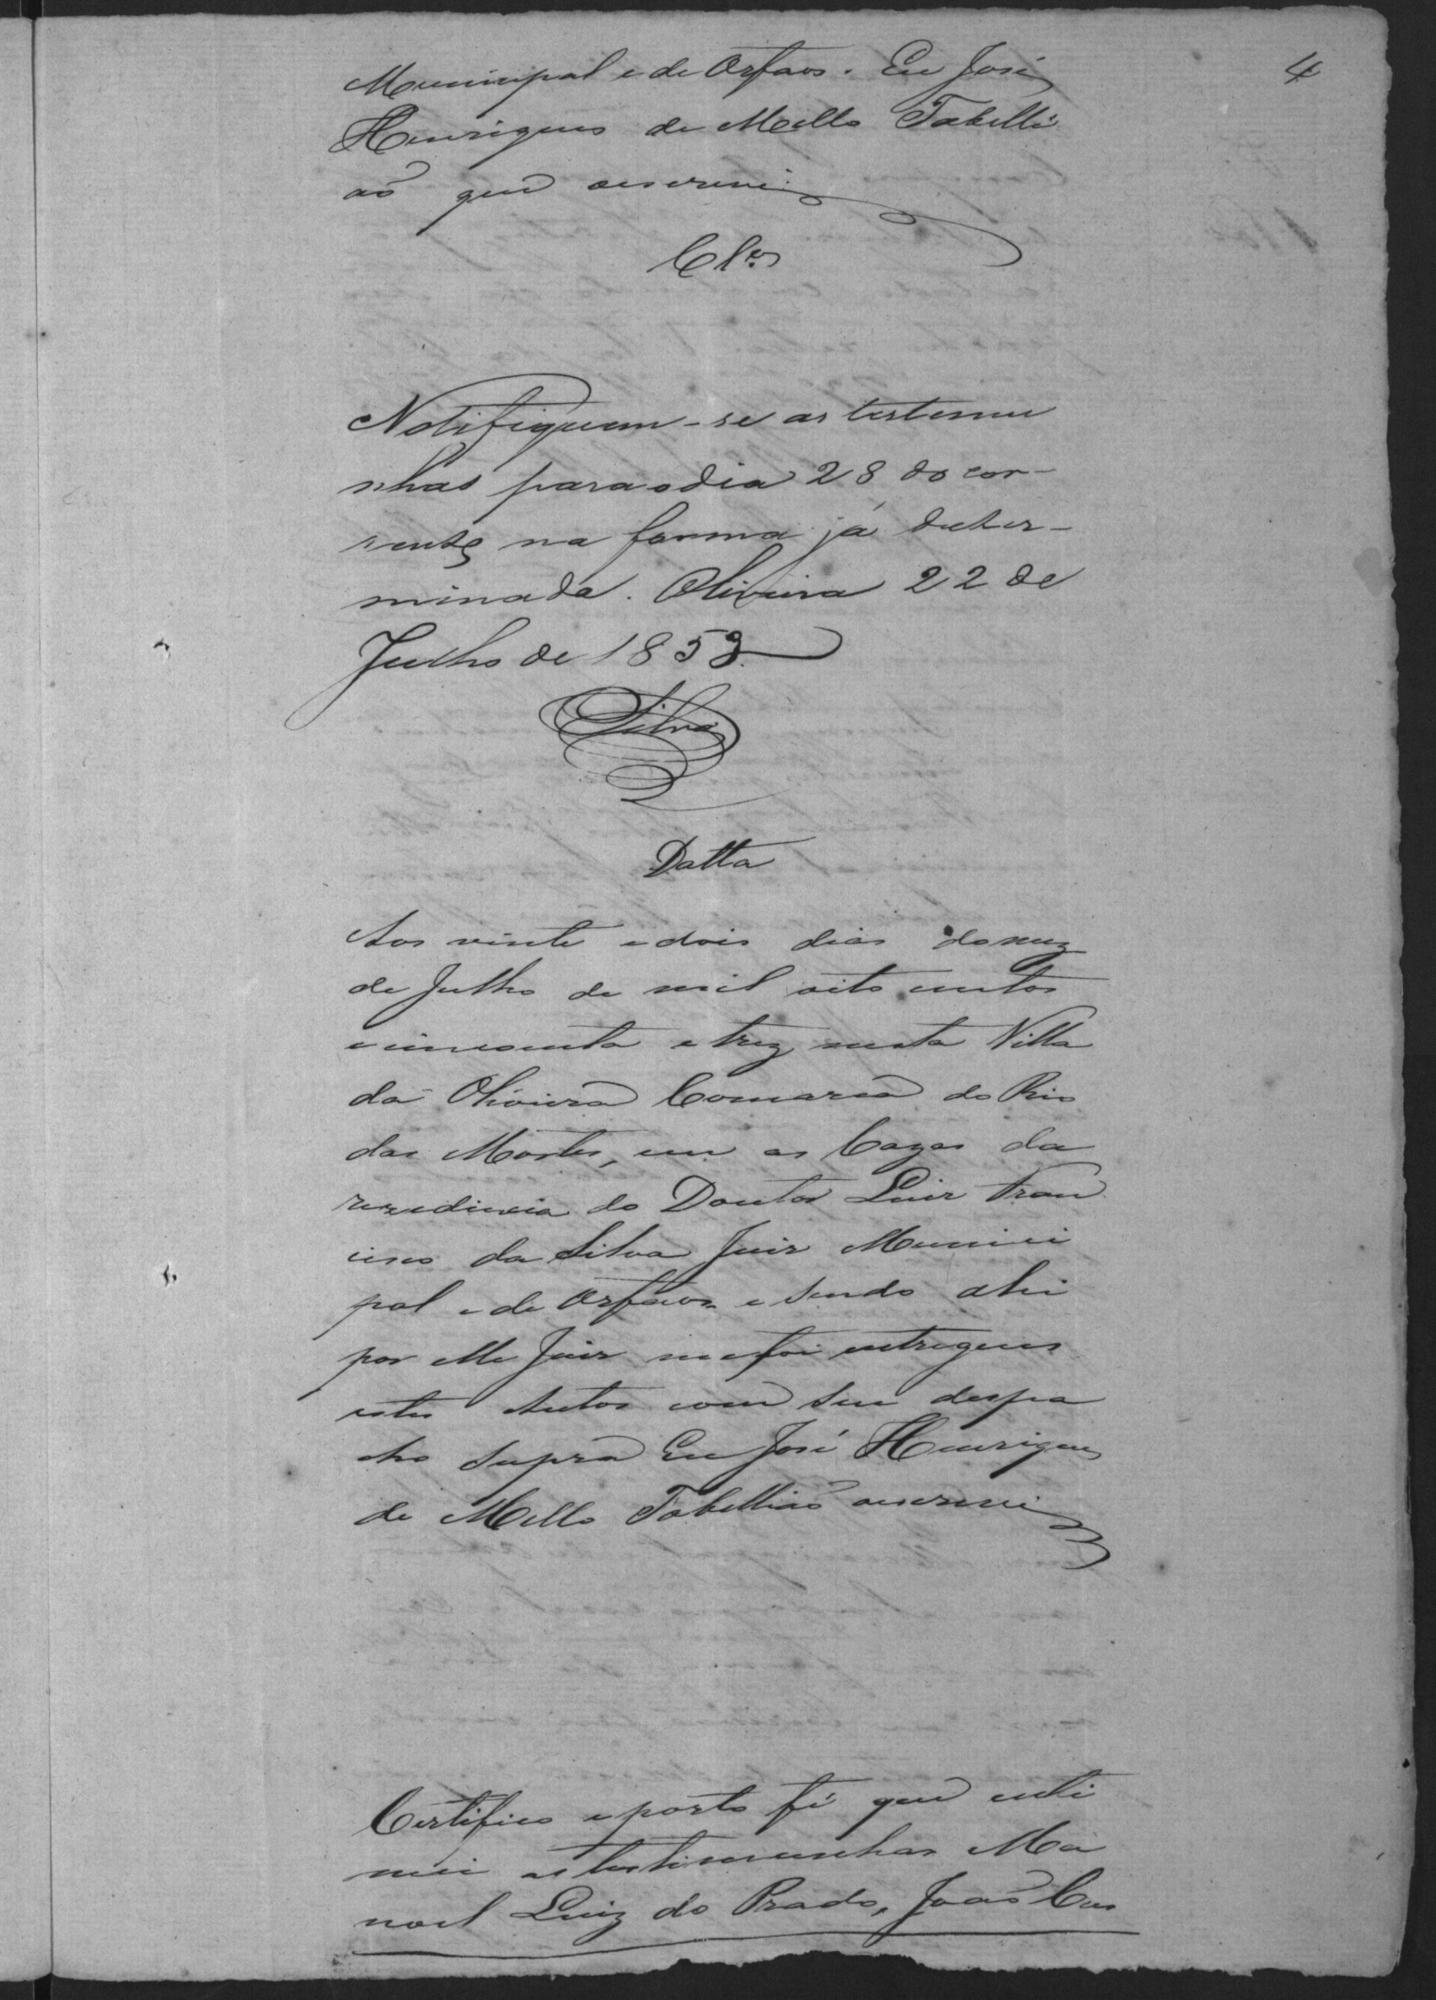 4
Municipal e de Orfaos. Eu José
Henriques de Mello Tabelli
aõ que oescrevi
Cls.
Notifiquem-se as testemu
nhas para o dia 28 do cor-
rente na forma já deter-
minada. Oliveira 22 de
Julho de 1853.
Silva
Datta
Aos vinte e dois dias do mez
de Julho de mil oito centos
e cincoenta e trez nesta Villa
da Oliveira Comarca do Rio
das Mortes, em as Cazas da
rezedincia do Doutor Luiz Fran
cisco da Silva Juiz Munici
pal e de Orfaos e sendo ahi
por elle Juiz me foi entregues
estes Autos com seu despa
cho supra Eu José Henriques
de Mello Tabelliaõ oescrevi
Certifico e porto fé que enti
mei as testimunhas Ma
noel Luiz do Prado, Joaõ